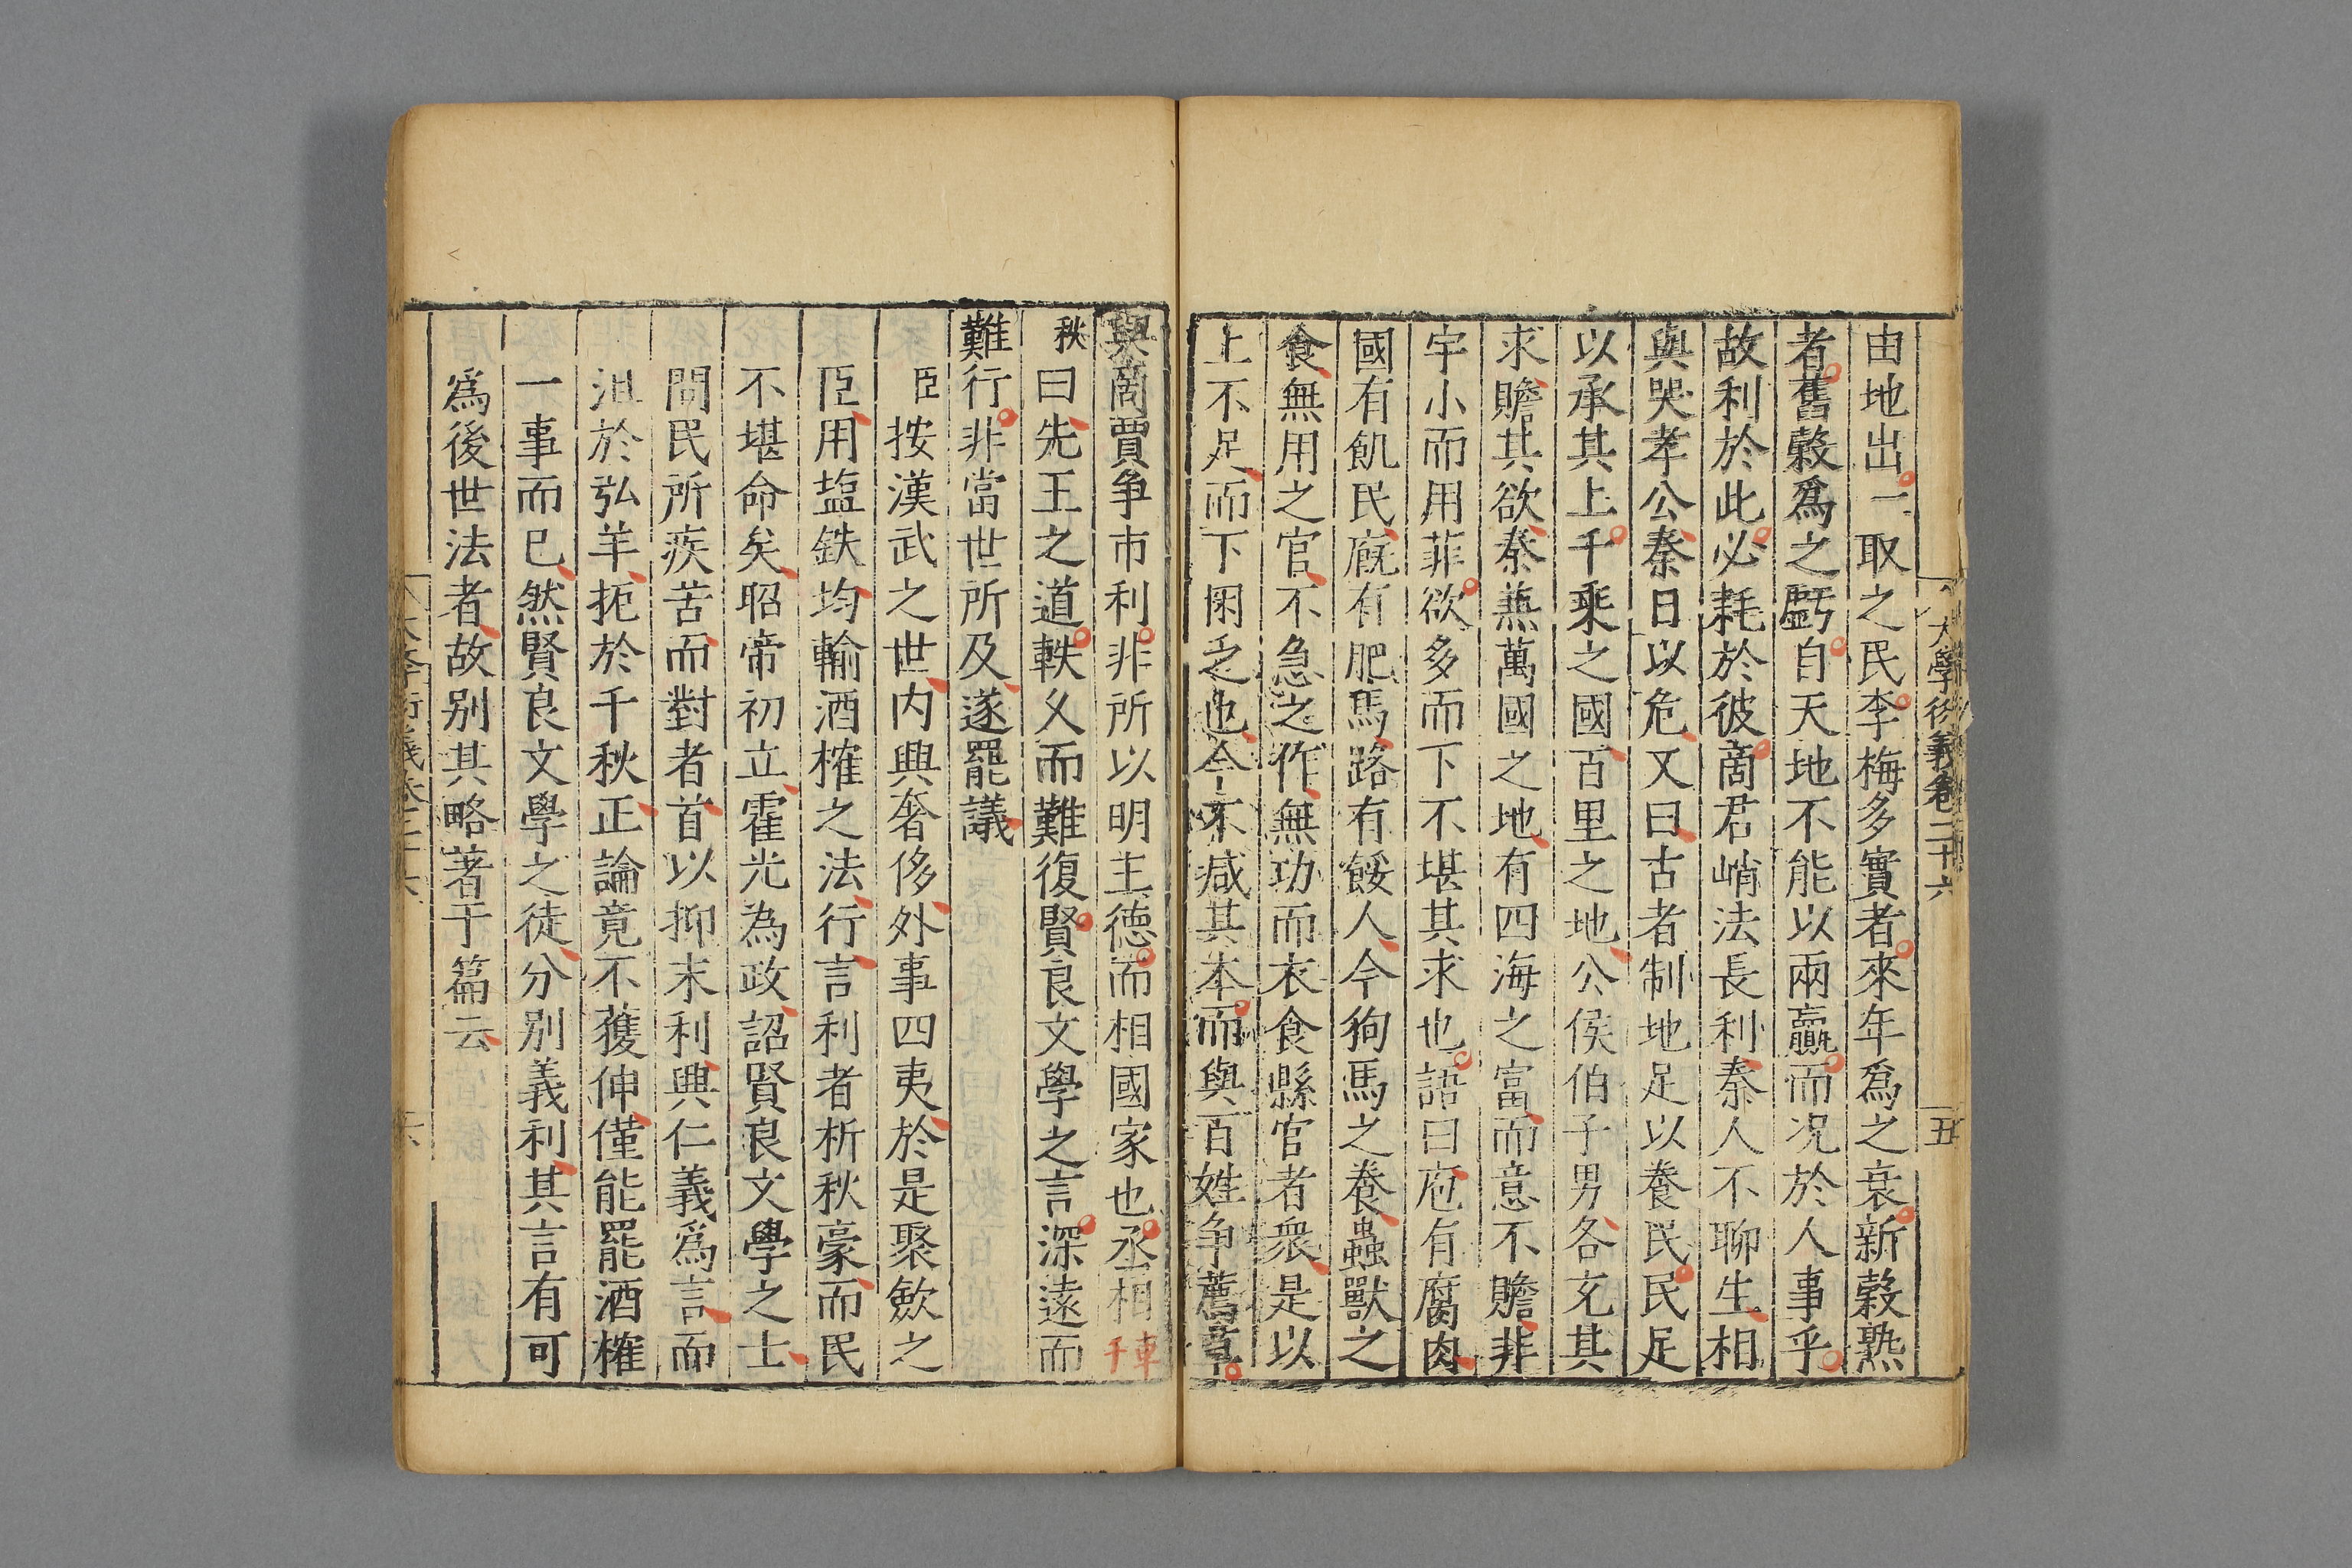 大學衍義卷二十六
五
由地出一取之民李梅多實者來年爲之衰新穀熟
者舊穀爲之虧自天地不能以兩贏而况於人事乎
故利於此必耗於彼商君峭法長利秦人不聊生相
與哭孝公秦日以危又曰古者制地足以養民民足
以承其上千乘之國百里之地公侯伯子男各充其
求贍其欲秦蕪萬國之地有四海之富而意不贍非
宇小而用菲欲多而下不堪其求也語曰庖有腐肉
國有飢民廐有肥馬路有餒人今狗馬之養蟲獸之
食無用之官不急之作無功而衣食縣官者衆是以
上不足而下困乏也今不减其本而與百姓争薦草
與商賈争市利非所以明主德而相國家也丞相車千
秋曰先王之道軼乆而難復賢良文學之言深遠而
難行非當世所及遂罷議
臣按漢武之世内興奢侈外事四夷於是聚歛之
臣用塩鉄均輸酒榷之法行言利者析秋豪而民
不堪命矣昭帝初立霍光為政詔賢良文學之士
問民所疾苦而對者首以抑末利興仁義爲言而
沮於弘羊扼於千秋正論竟不獲伸僅能罷酒榷
一事而已然賢良文學之徒分别義利其言有可
爲後世法者故别其略著于篇云